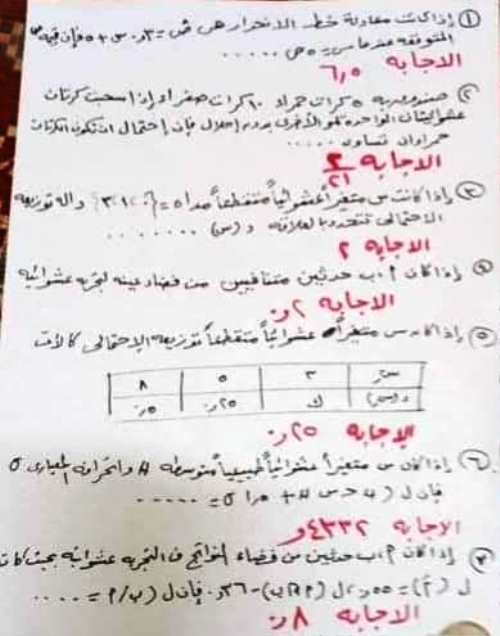 ① إذا كانت معادلة خط الانحدار هى ص = ٣ر. س + ٥ فإن قيمة ص
المتوقعة عندما س = ٥ هى .....
الاجابه ٦,٥
② صندوق به ٥ كرات حمراء ١٠ كرات صفراء إذا سحبت كرتان
عشوائيتان الواحدة تلو الأخرى بدون إحلال فإن إحتمال ان تكون الكرتان
حمراوان تساوى .....
الاجابه ٢/٢١
③ إذا كانت س متغيراً عشوائياً متقطعاً مداه = {٣،١،٠} دالة توزيعه
الاحتمالى تتحدد بالعلاقه د (س) .......
الاجابه ٢
إذا كان ٩، ب حدثين متنافيين من فضاء عينه لتجربه عشوائيه
الاجابه ٢ر.
⑤ إذا كان س متغيراً عشوائياً متقطعاً توزيعه الإحتمالى كالآتى
٣ ٥ ٨
د(س) ك ٢٥ر. ٥ر.
الاجابه ٢٥ر.
⑥ إذا كان س متغيراً عشوائياً طبيعياً متوسطه μ وانحرافه المعيارى σ
فإن ل (μ < س < μ + ٥ر١ σ) = .....
الاجابه ٤٣٣٢ر.
إذا كان ٩، ب حدثين من فضاء النواتج فى التجربه عشوائيه بحيث كان
فإن ل (ب/٩) = ....
الاجابه ٨ر.